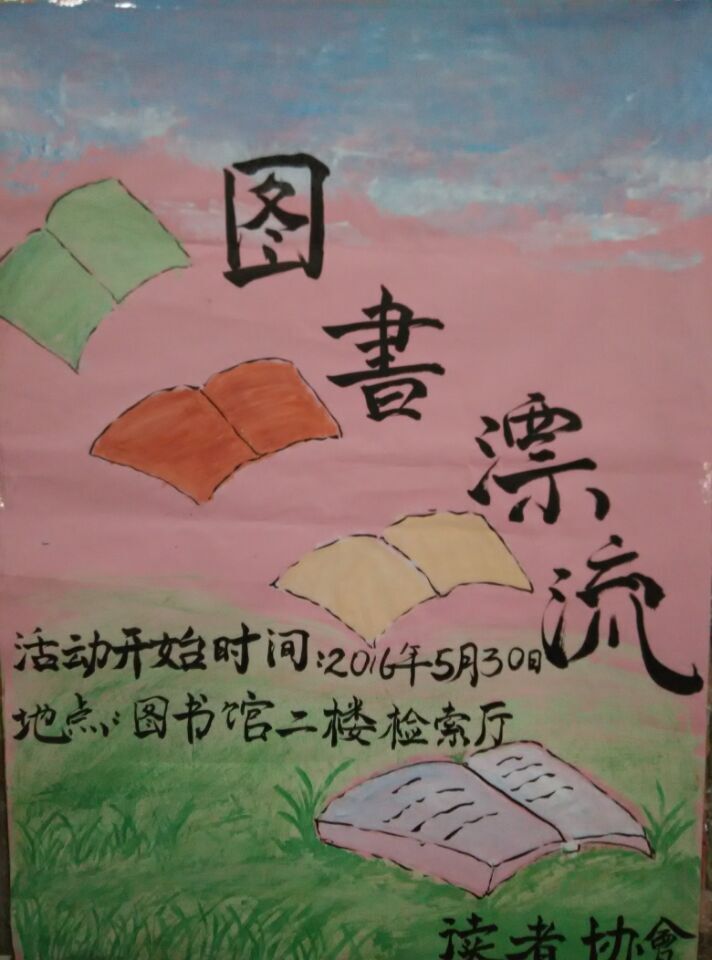 图書漂流
活动开始时间:2016年5月30日
地点:图书馆二楼检索厅
读者协會